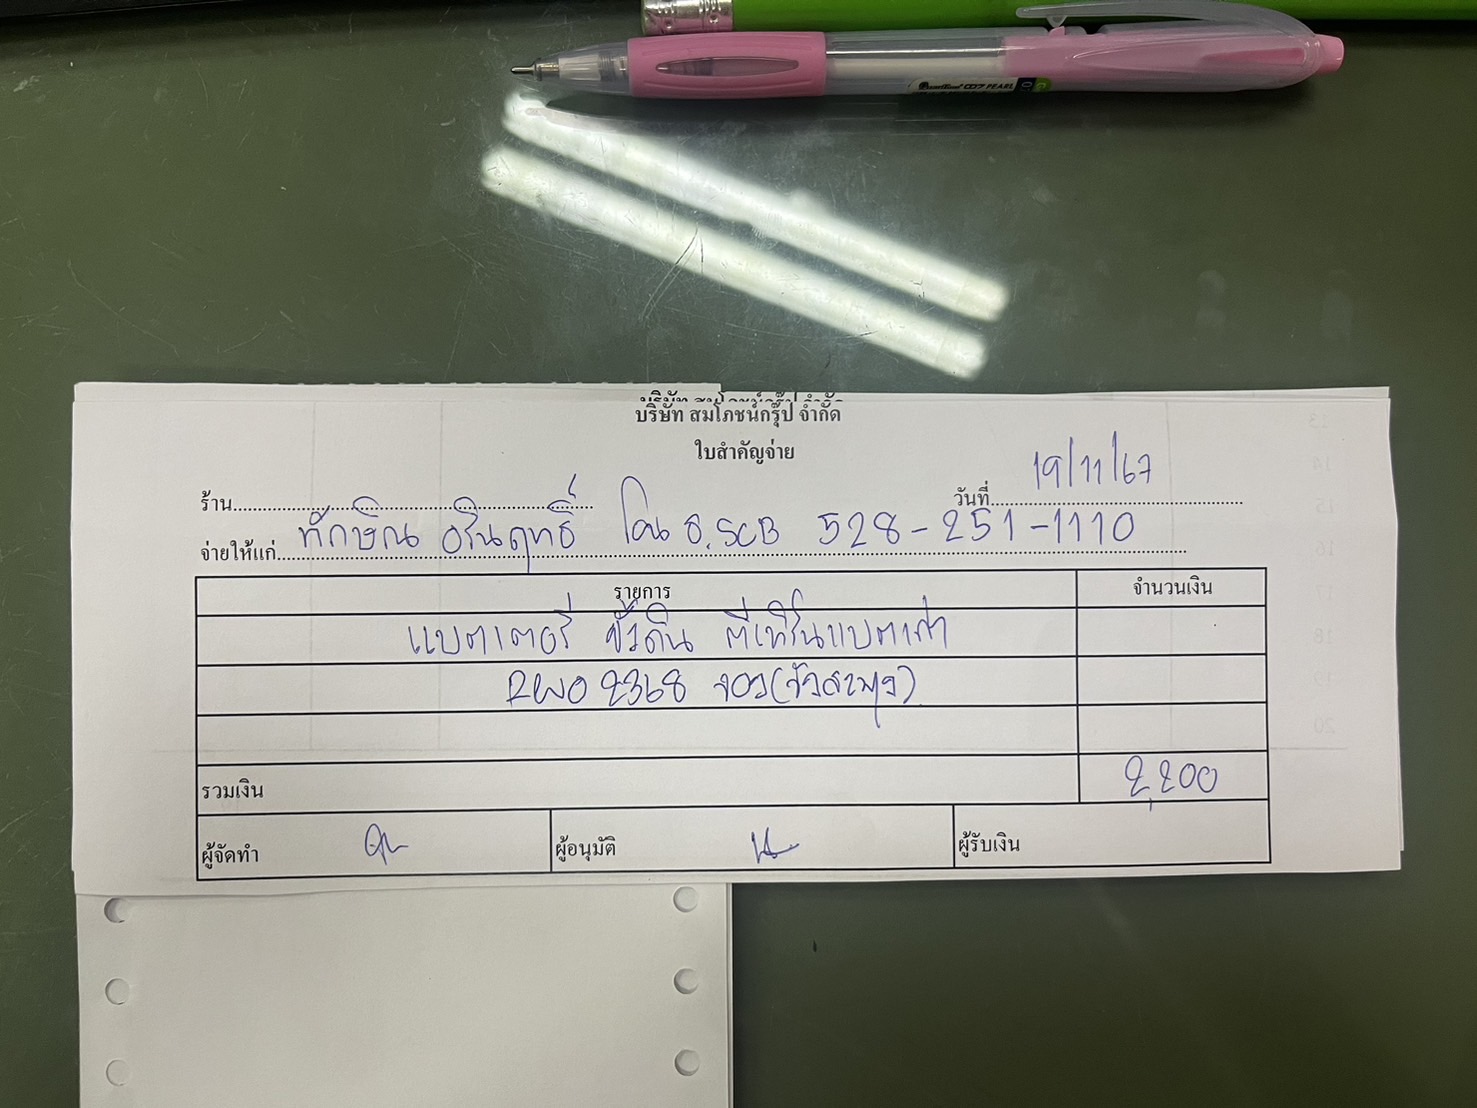 บริษัท สมโภชน์กรุ๊ป จำกัด
ใบสำคัญจ่าย
ร้าน
วันที่ 19/11/67
จ่ายให้แก่ ทักษิณ อรินฤทธิ์ โอน ธ.SCB 528-251-1110
รายการ จำนวนเงิน
แบตเตอรี่ ขั้วดิน ตีเทิร์นแบตเก่า
2368
รวมเงิน 2,200
ผู้จัดทำ
ผู้อนุมัติ
ผู้รับเงิน